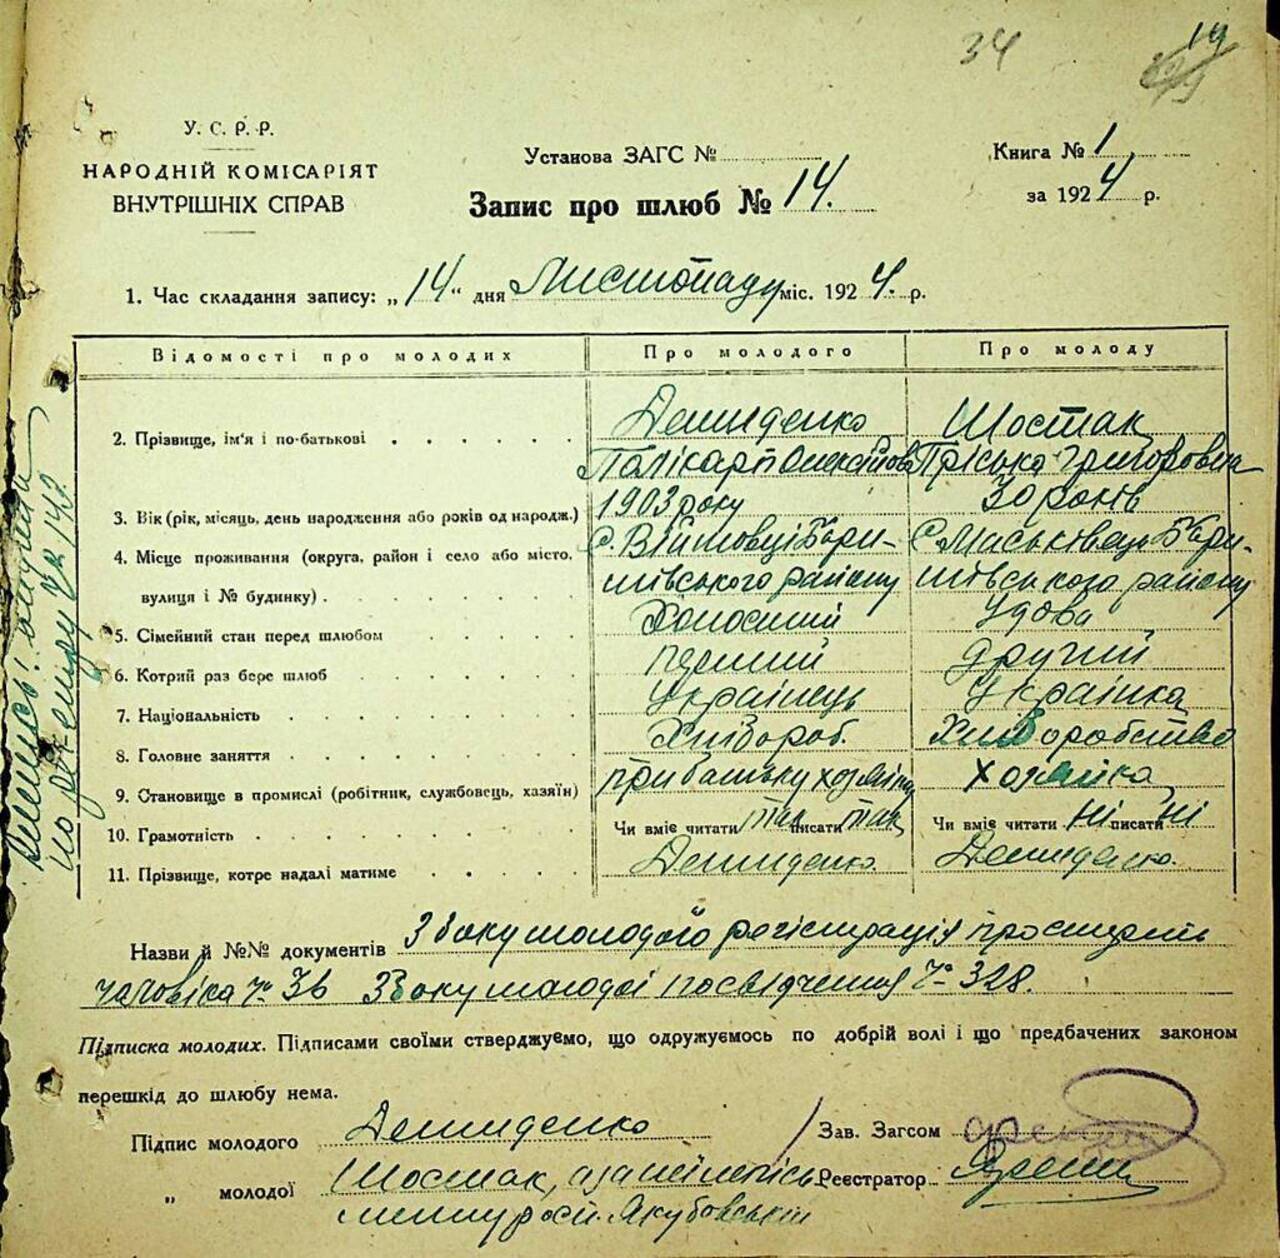 34
19
У. С. Р. Р.
НАРОДНІЙ КОМІСАРІЯТ
ВНУТРІШНІХ СПРАВ
Установа ЗАГС №
Запис про шлюб № 14.
Книга № 1
за 1924 р.
1. Час складання запису: „14" дня Листопаду міс. 1924. р.
Відомості про молодих
Про молодого
Про молоду
2. Прізвище, ім'я і по-батькові
Демиденко
Полікарп
Шостак
Пріська Григоровна
3. Вік (рік, місяць, день народження або років од народж.)
1903 року
30 років
4. Місце проживання (округа, район і село або місто,
вулиця і № будинку)
с. Війтовці Бори-
шівського району
С. Маськівець Бори-
шівського району
5. Сімейний стан перед шлюбом
Холостий
Удова
6. Котрий раз бере шлюб
перший
другий
7. Національність
Українець
Українка
8. Головне заняття
Хлібороб.
Хліборобство
9. Становище в промислі (робітник, службовець, хазяїн)
при батьку
хозяйка
10. Грамотність
Чи вміє читати так писати так
Чи вміє читати ні писати ні
11. Прізвище, котре надалі матиме
Демиденко.
Демиденко.
Назви й №№ документів З боку молодого регістрація
чаловіка З боку молодої посвідчення № 328.
Підписка молодих. Підписами своїми стверджуємо, що одружуємось по добрій волі і що предбачених законом
перешкід до шлюбу нема.
Підпис молодого Демиденко
Зав. Загсом
„ молодої Шостак, а за неї
Реєстратор
Якубовський